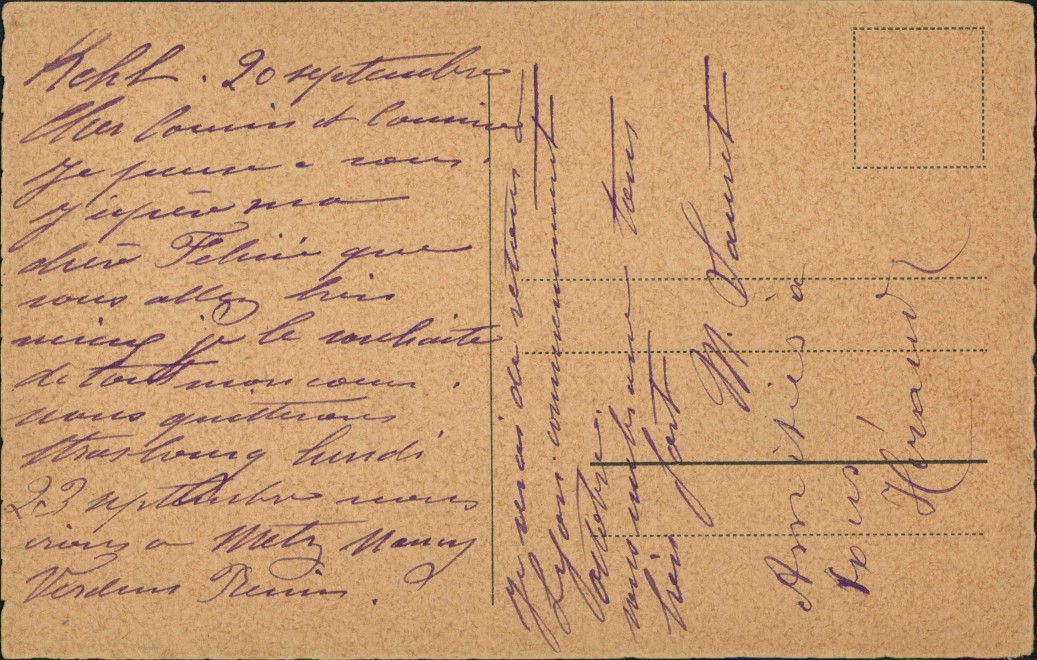 Kehl. 20 septembre
Cher Cousin et Cousine
Je pense a vous.
J'espère ma
chère Félicie que
vous allez bien
mieux je le souhaite
de tout mon cœur.
nous quitterons
Strasbourg lundi
23 septembre nous
irons a Metz Nancy
Verdun Reims.
Je serai de retour a
Lyon commencement
octobre
vous embrasse tous
bien fort
M. Sauret
Amitiés a